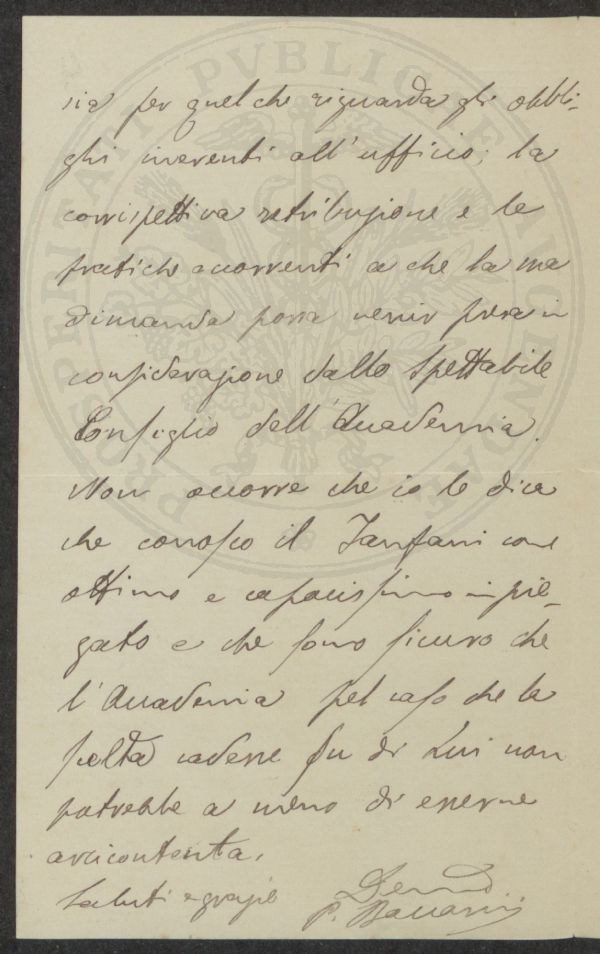 PROSPERITATI PVBLICAE AVGENDAE
sia per quel che riguarda gli obbli-
ghi inerenti all'ufficio; la
corrispettiva retribuzione e le
pratiche occorrenti a che la sua
dimanda possa venir presa in
considerazione dallo Spettabile
Consiglio dell'Accademia.
Non occorre che io le dica
che conosco il Tanfani come
ottimo e capacissimo impie-
gato e che sono sicuro che
l'Accademia pel caso che la
scelta cadesse su di Lui non
potrebbe a meno di esserne
arcicontenta.
Saluti e grazie
P. Baccarini